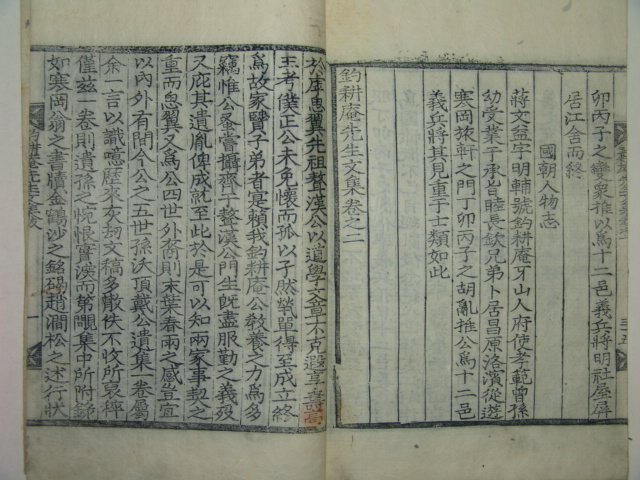 卯丙子之變衆推以爲十二邑義兵將明社屋屛
居江舍而終
國朝人物志
蔣文益字明輔號釣耕庵牙山人府使孝範曾孫
幼受業于承旨睦長欽兄弟卜居昌原洛濱從遊
寒岡旅軒之門丁卯丙子之胡亂推公爲十二邑
義兵將其見重于士類如此
釣耕庵先生文集卷之二
於虖思翼先祖聱漢公以道學文章不克遐享
王考僕正公未免懷而孤以孑然煢單得至成立終
爲故家賢子弟者寔賴我釣耕庵公敎養之方爲多
竊惟公蚤嘗攝齊于聱漢公門生旣盡服勤之義歿
又庇其遺胤俾成就至此於是可以知兩家事契之
重而思翼又爲公四世外裔則末葉春雨之感豈宜
以內外有間今公之五世孫沃頂戴公遺集一卷屬
余一言以識噫歷來灰刼文稿多散佚不收所裒稡
僅玆一卷則遺孫之怳恨實深而第覵集中所附錄
如寒岡翁之書牘金鶴沙之銘碣趙澗松之述行狀